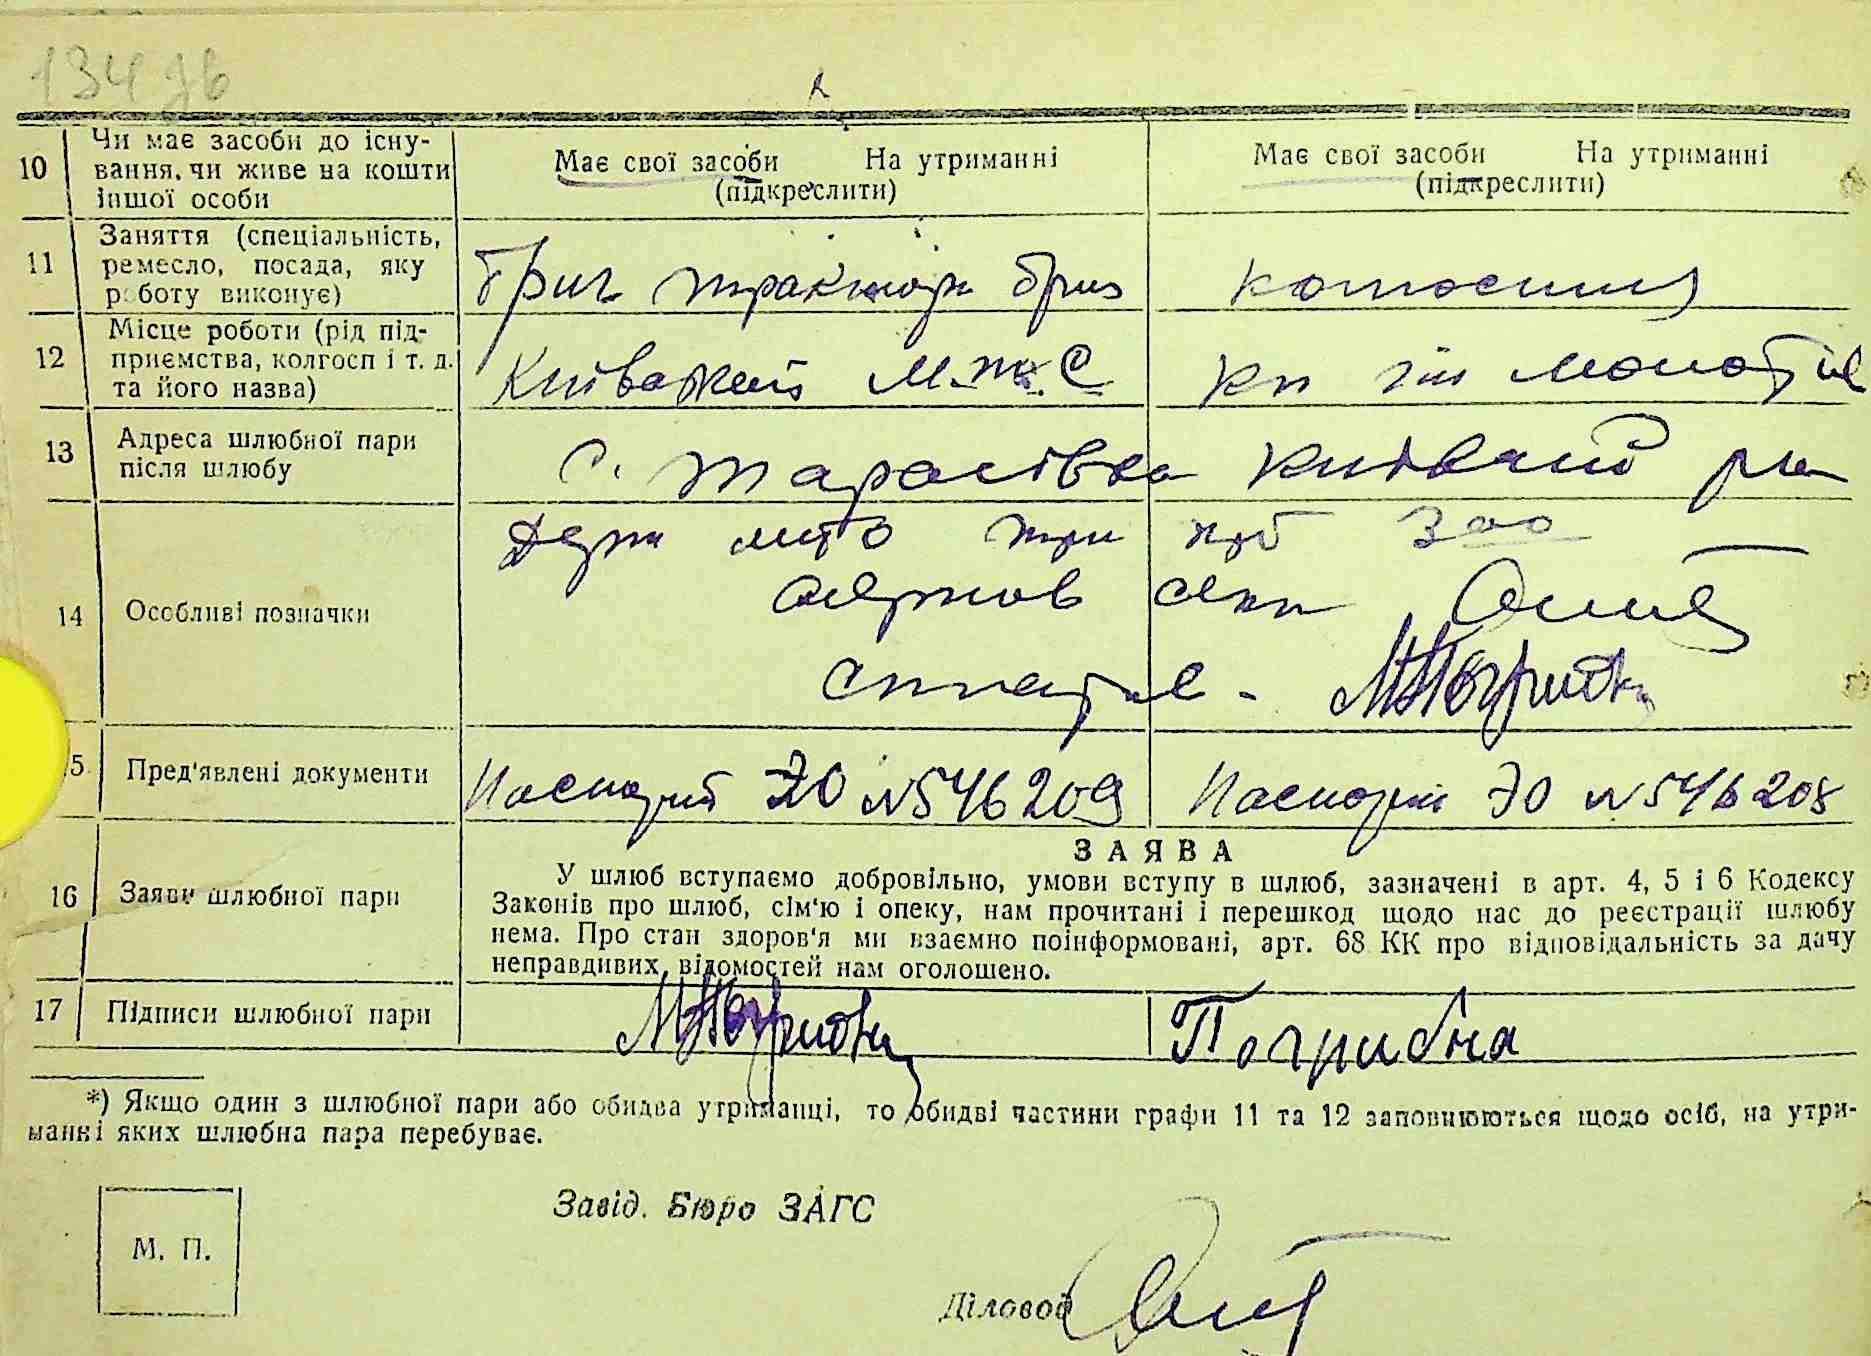 134
10 Чи має засоби до існу-
вання, чи живе на кошти
іншої особи
Має свої засоби На утриманні
(підкреслити)
Має свої засоби На утриманні
(підкреслити)
11 Заняття (спеціальність,
ремесло, посада, яку
роботу виконує)
бриг. трактори бриг
колгосниця
12 Місце роботи (рід під-
приємства, колгосп і т. д.
та його назва)
М.Т.С
13 Адреса шлюбної пари
після шлюбу
с. Тарасівка
14 Особливі позначки
Держ мито три крб 3 00
сплатив -
15 Пред'явлені документи
Паспорт ЭО №546209
Паспорт ЭО №546208
16 Заяви шлюбної пари
ЗАЯВА
У шлюб вступаємо добровільно, умови вступу в шлюб, зазначені в арт. 4, 5 і 6 Кодексу
Законів про шлюб, сім'ю і опеку, нам прочитані і перешкод щодо нас до реєстрації шлюбу
нема. Про стан здоров'я ми взаємно поінформовані, арт. 68 КК про відповідальність за дачу
неправдивих відомостей нам оголошено.
17 Підписи шлюбної пари
Погрибна
*) Якщо один з шлюбної пари або обидва утриманці, то обидві частини графи 11 та 12 заповнюються щодо осіб, на утри-
манні яких шлюбна пара перебуває.
М. П.
Завід. Бюро ЗАГС
Діловод